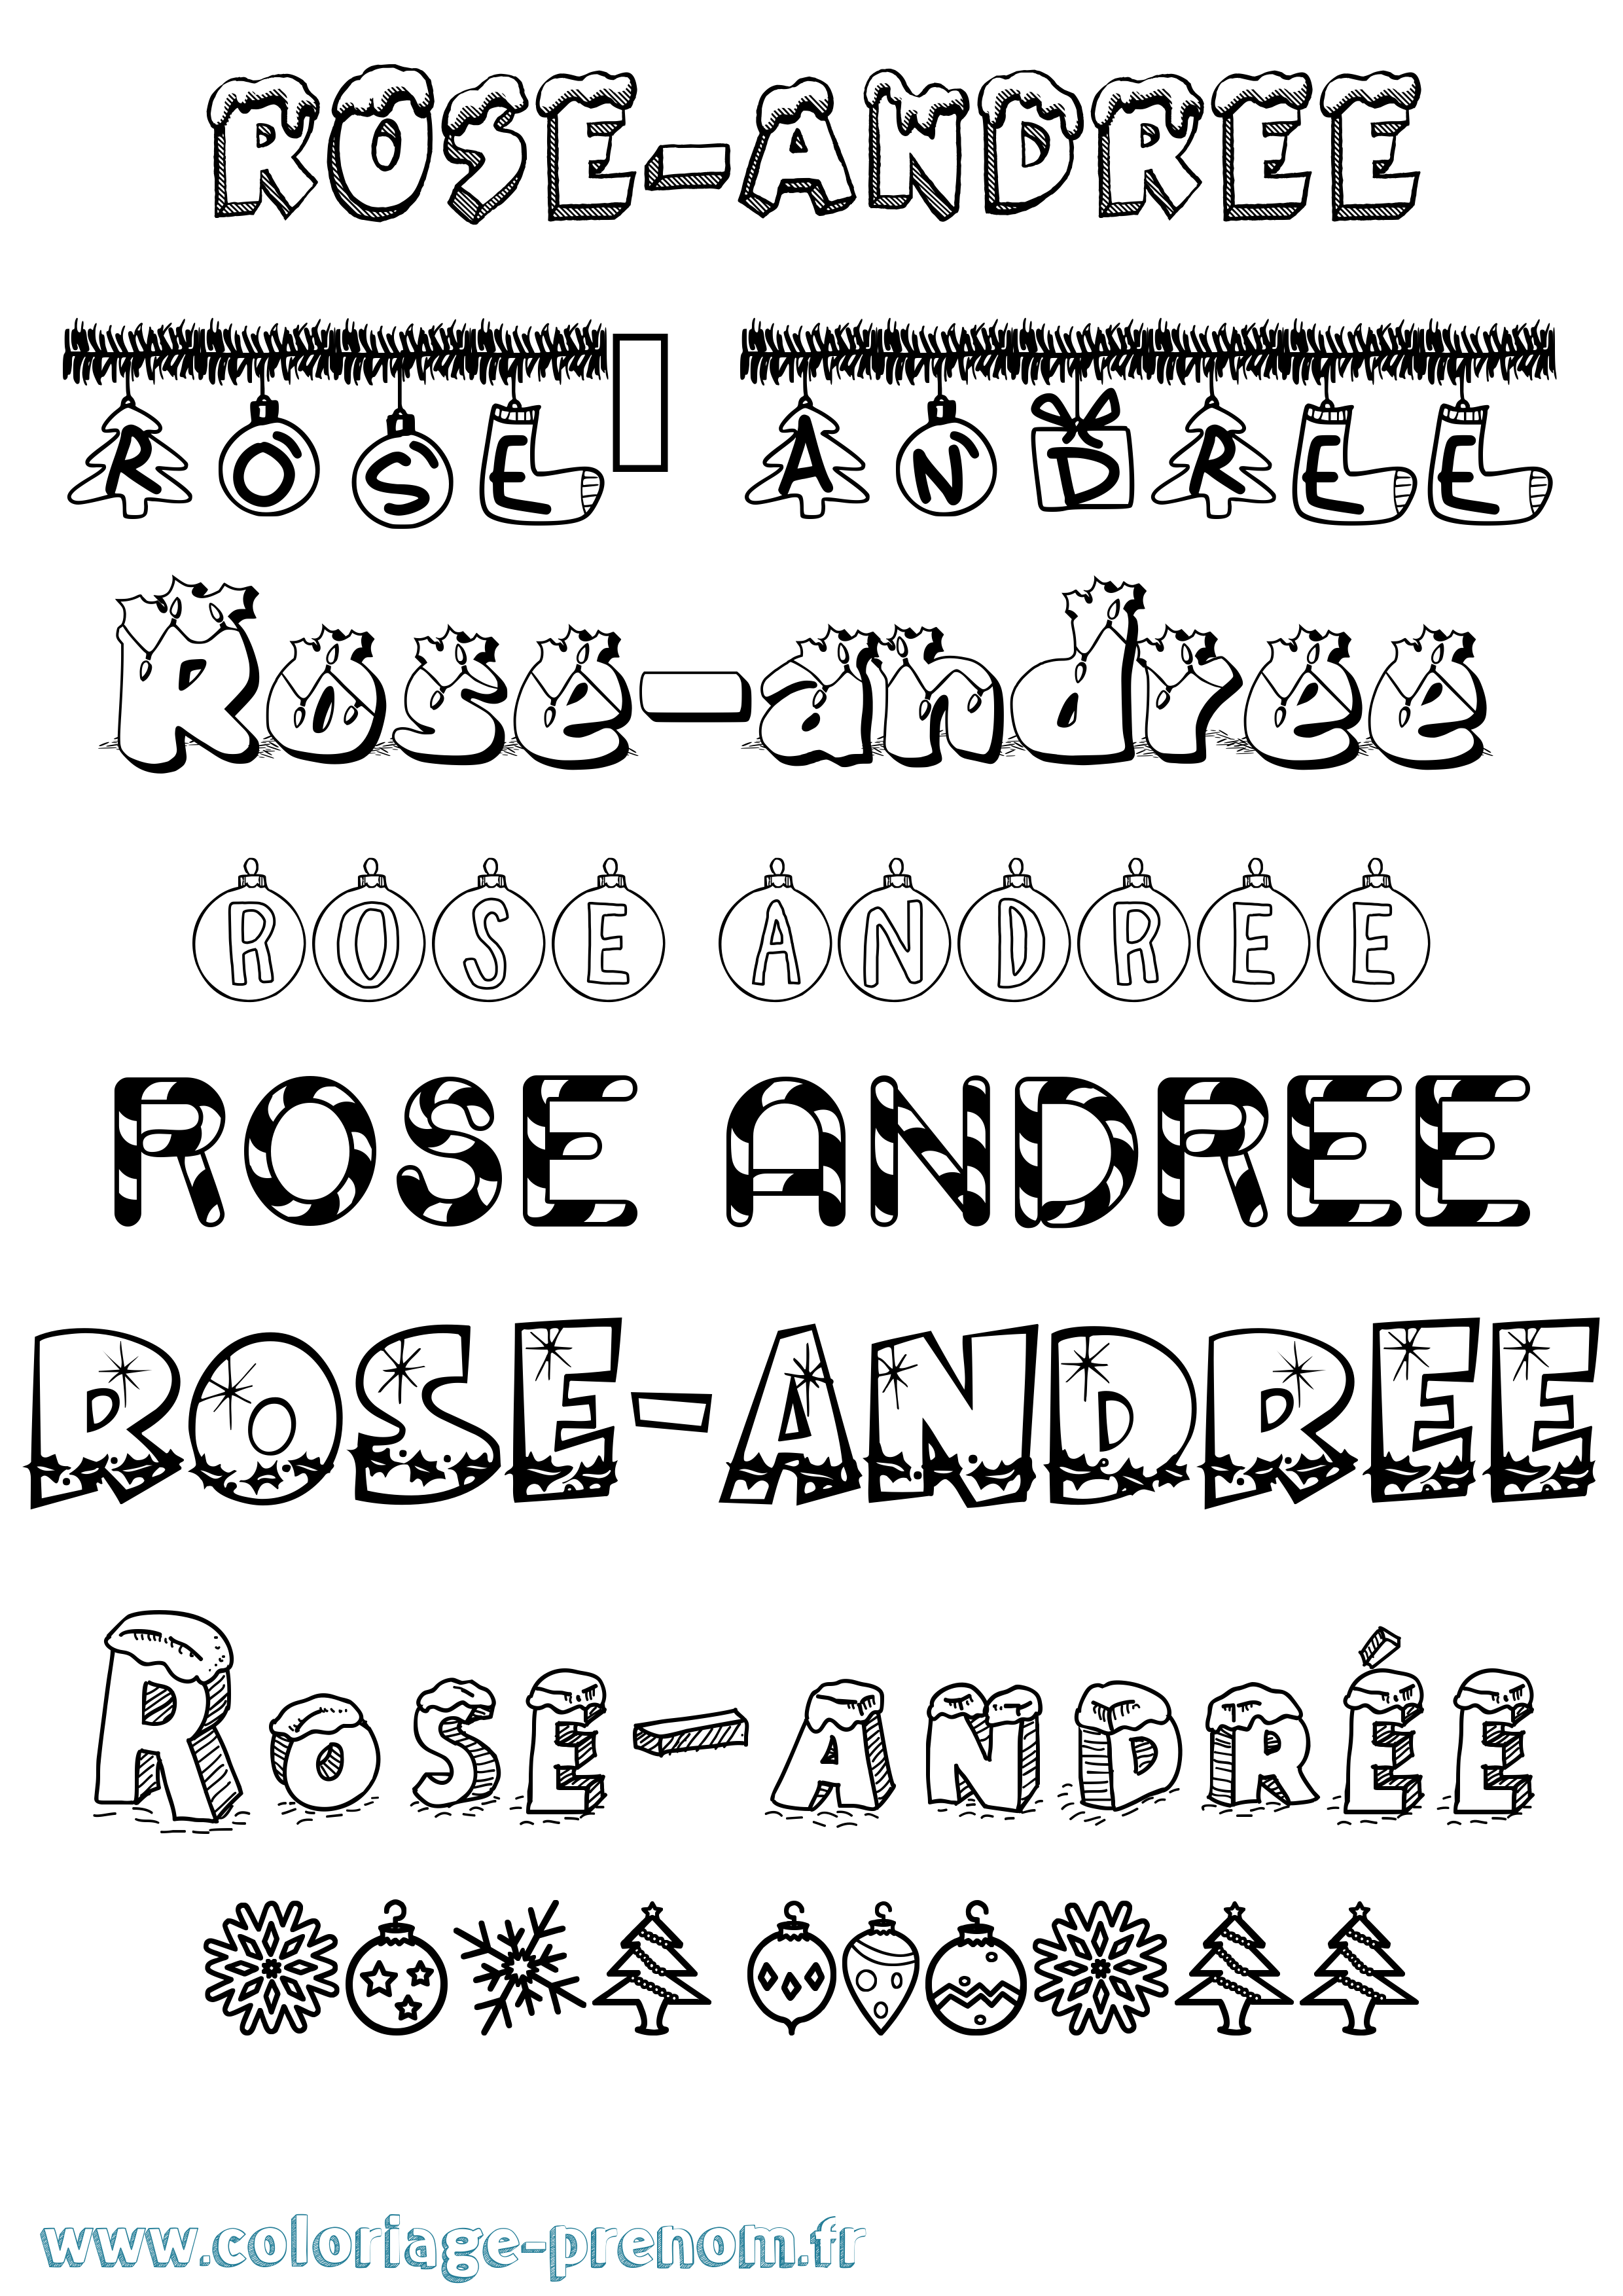 ROSE-ANDREE
ROSE ANDREE
Rose-andree
ROSE ANDREE
ROSE ANDREE
ROSE-ANDREE
ROSE-ANDRÉE
www.coloriage-prenom.fr